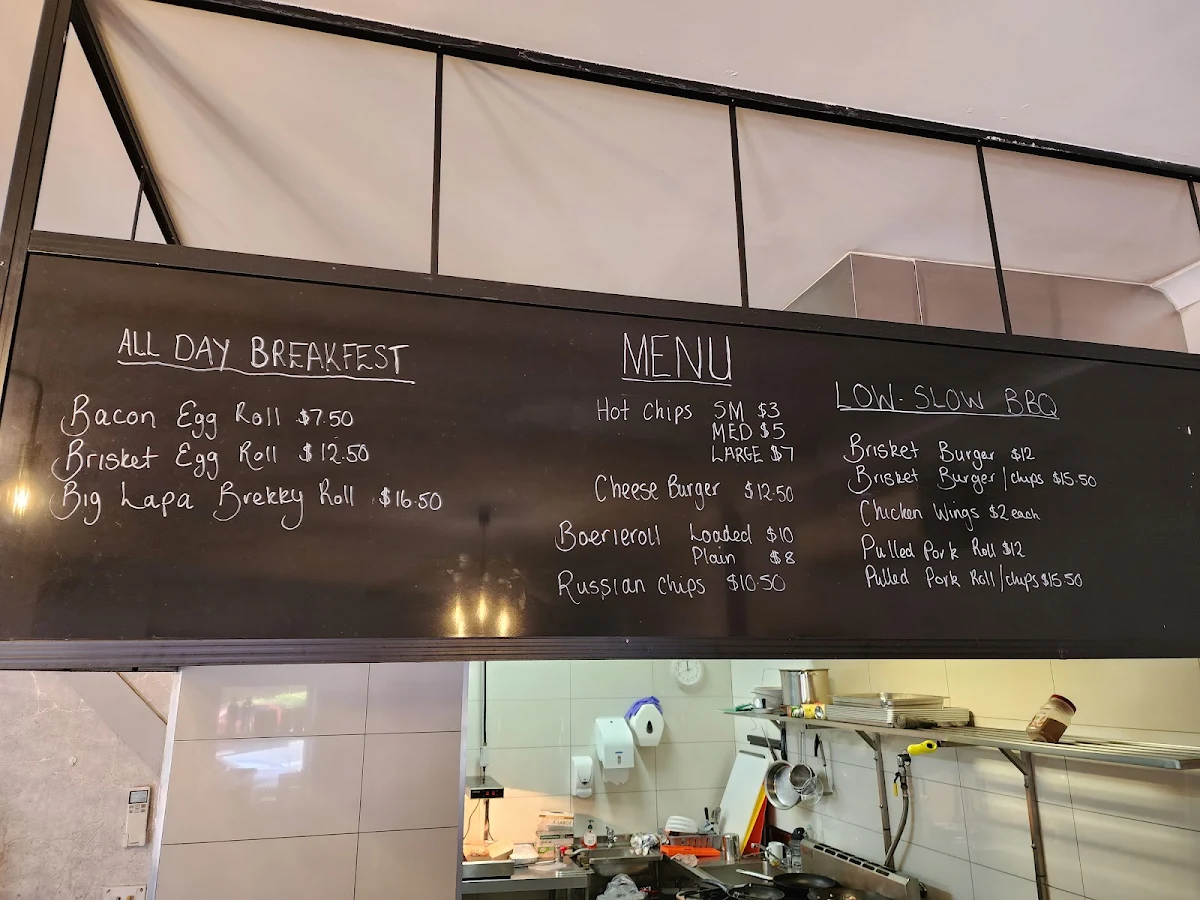 ALL DAY BREAKFEST
Bacon Egg Roll $7.50
Brisket Egg Roll $12.50
Big Lapa Brekky Roll $16.50
MENU
Hot Chips SM $3
MED $5
LARGE $7
Cheese Burger $12.50
Boerieroll Loaded $10
Plain $8
Russian Chips $10.50
LOW-SLOW BBQ
Brisket Burger $12
Brisket Burger/chips $15.50
Chicken Wings $2 each
Pulled Pork Roll $12
Pulled Pork Roll/chips $15.50